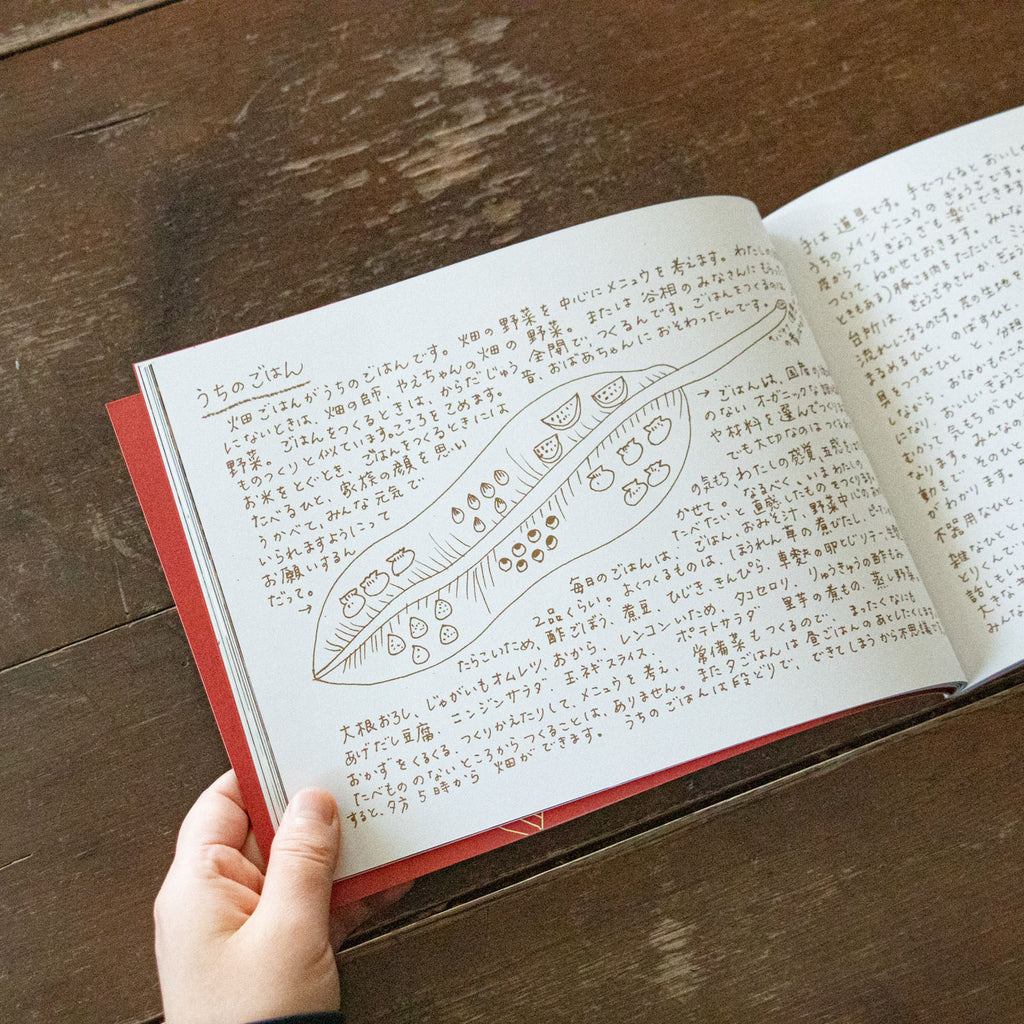 うちのごはん
畑ごはんがうちのごはんです。畑の野菜を中心にメニュウを考えます。わたしの
にないときは、畑の師、やえちゃんの畑の野菜。または谷相のみなさんにもらった
野菜。ごはんをつくるときは、からだじゅう全開で、つくるんです。ごはんをつくるのは
ものつくりと似ています。こころをこめます。昔、おばあちゃんにおそわったんです。
お米をとぐとき、ごはんをつくるときには
たべるひと、家族の顔を思い
うかべて、みんな元気で
いられますようにって
お願いするん
だって。→
→ごはんは、国産の
のないオーガニックな
や材料を選んでつくり
でも大切なのはつくる
の気もち わたしの感覚、五感を
かせて。なるべく、いまわたしの
たべたいと直感したものをつくります
毎日のごはんは、ごはん、おみそ汁、野菜中心のお
2品くらい。よくつくるものは、ほうれん草の煮びたし、
たらこいため、酢ごぼう、煮豆、ひじき、きんぴら、車麩の卵とじソテー、
大根おろし、じゃがいもオムレツ、おから、レンコンいため、タコセロリ、りゅうきゅうの酢もみ
あげだし豆腐、ニンジンサラダ、玉ネギスライス ポテトサラダ 里芋の煮もの、蒸し野菜、
おかずをくるくる、つくりかえたりして、メニュウを考え、常備菜もつくるので、まったくなにも
たべもののないところからつくることは、ありません。また夕ごはんは昼ごはんのあとしたくします
すると、夕方5時から畑ができます。うちのごはんは段どりで、できてしまうから不思議
手は道具です。手でつくるとおいし
うちのメインメニュウのぎょうざです。
度からつくるぎょうざも楽にできます
つくって、ねかせておきます。みんな
ときもある)豚こま肉をたたいてミン
台所は ぎょうざやさんがぎょう
流れになるのです。皮の生地を
まるめるひと、のばすひと
具をつつむひと と 分担
しながら、おなかもペこ
になり、おいしいぎょうざ
むかって、気もちがひと
なります。みんなの
動きで そのひと
がわかります。
不器用なひと、
雑なひとと、
とりくんで、
話しもいっ
大きな
みんな